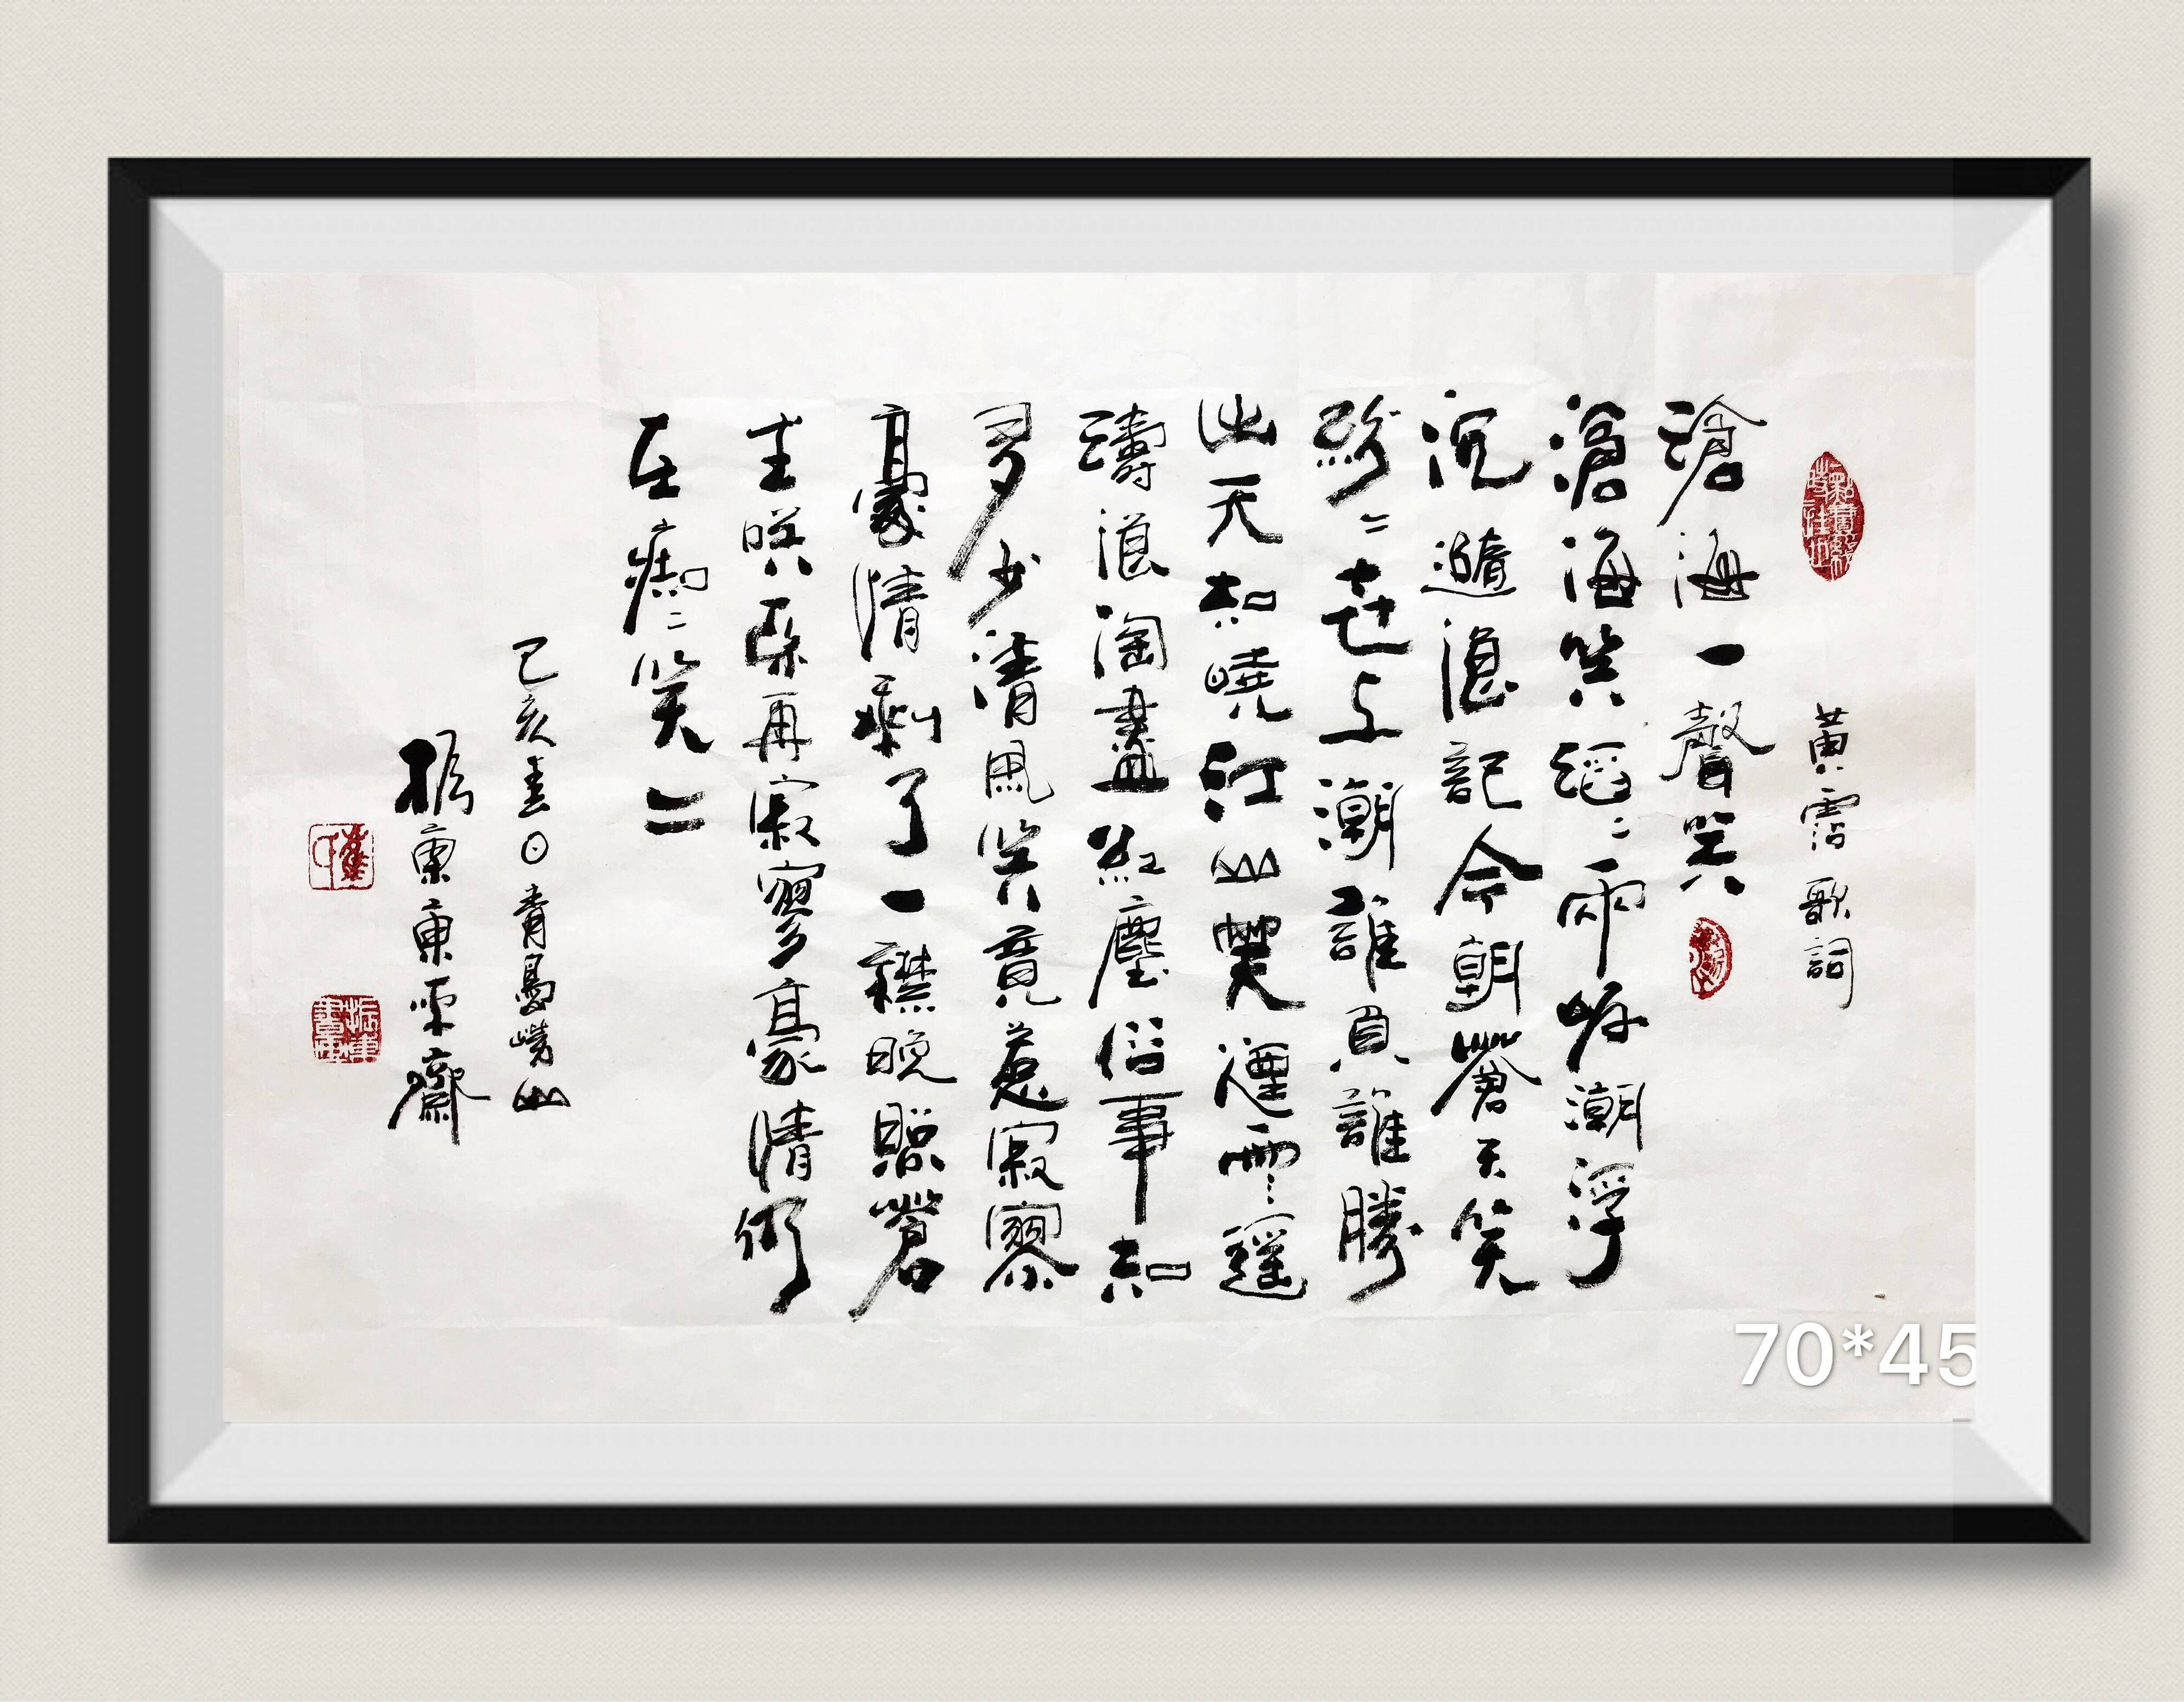 黄霑歌詞
滄海一聲笑
滄海笑滔〻兩岸潮浮
沉隨浪記今朝蒼天笑
紛〻世上潮誰負誰勝
出天知曉江山咲煙雨遥
濤浪淘盡紅塵俗事知
多少清風笑竟惹寂寥
豪情剩了一襟晚照蒼
生咲不再寂寥豪情仍
在痴〻笑〻
己亥春日青島嶗山
振東齋
70*45